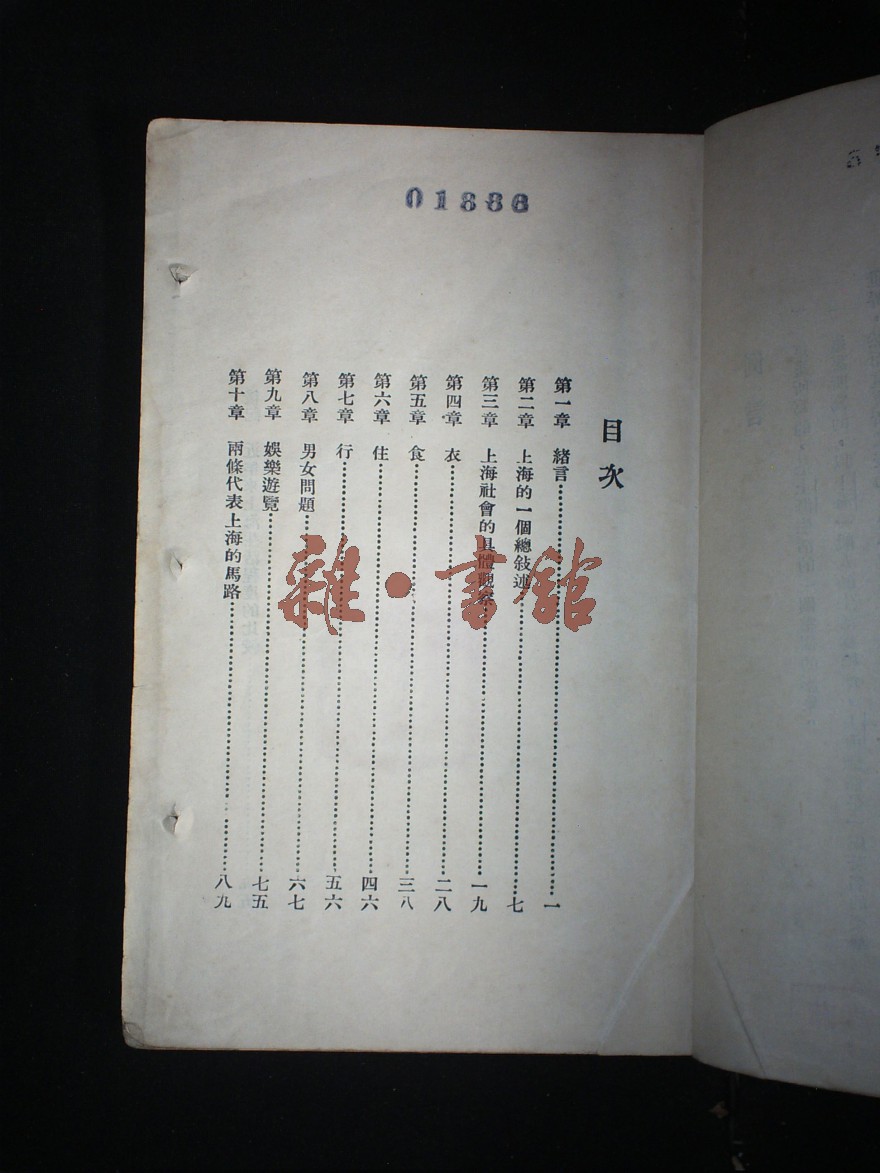 01886
目次
第一章 緒言……一
第二章 上海的一個總敍述……七
第三章 上海社會的具體觀察……一九
第四章 衣……二八
第五章 食……三八
第六章 住……四六
第七章 行……五六
第八章 男女問題……六七
第九章 娛樂遊覽……七五
第十章 兩條代表上海的馬路……八九
雜·書館